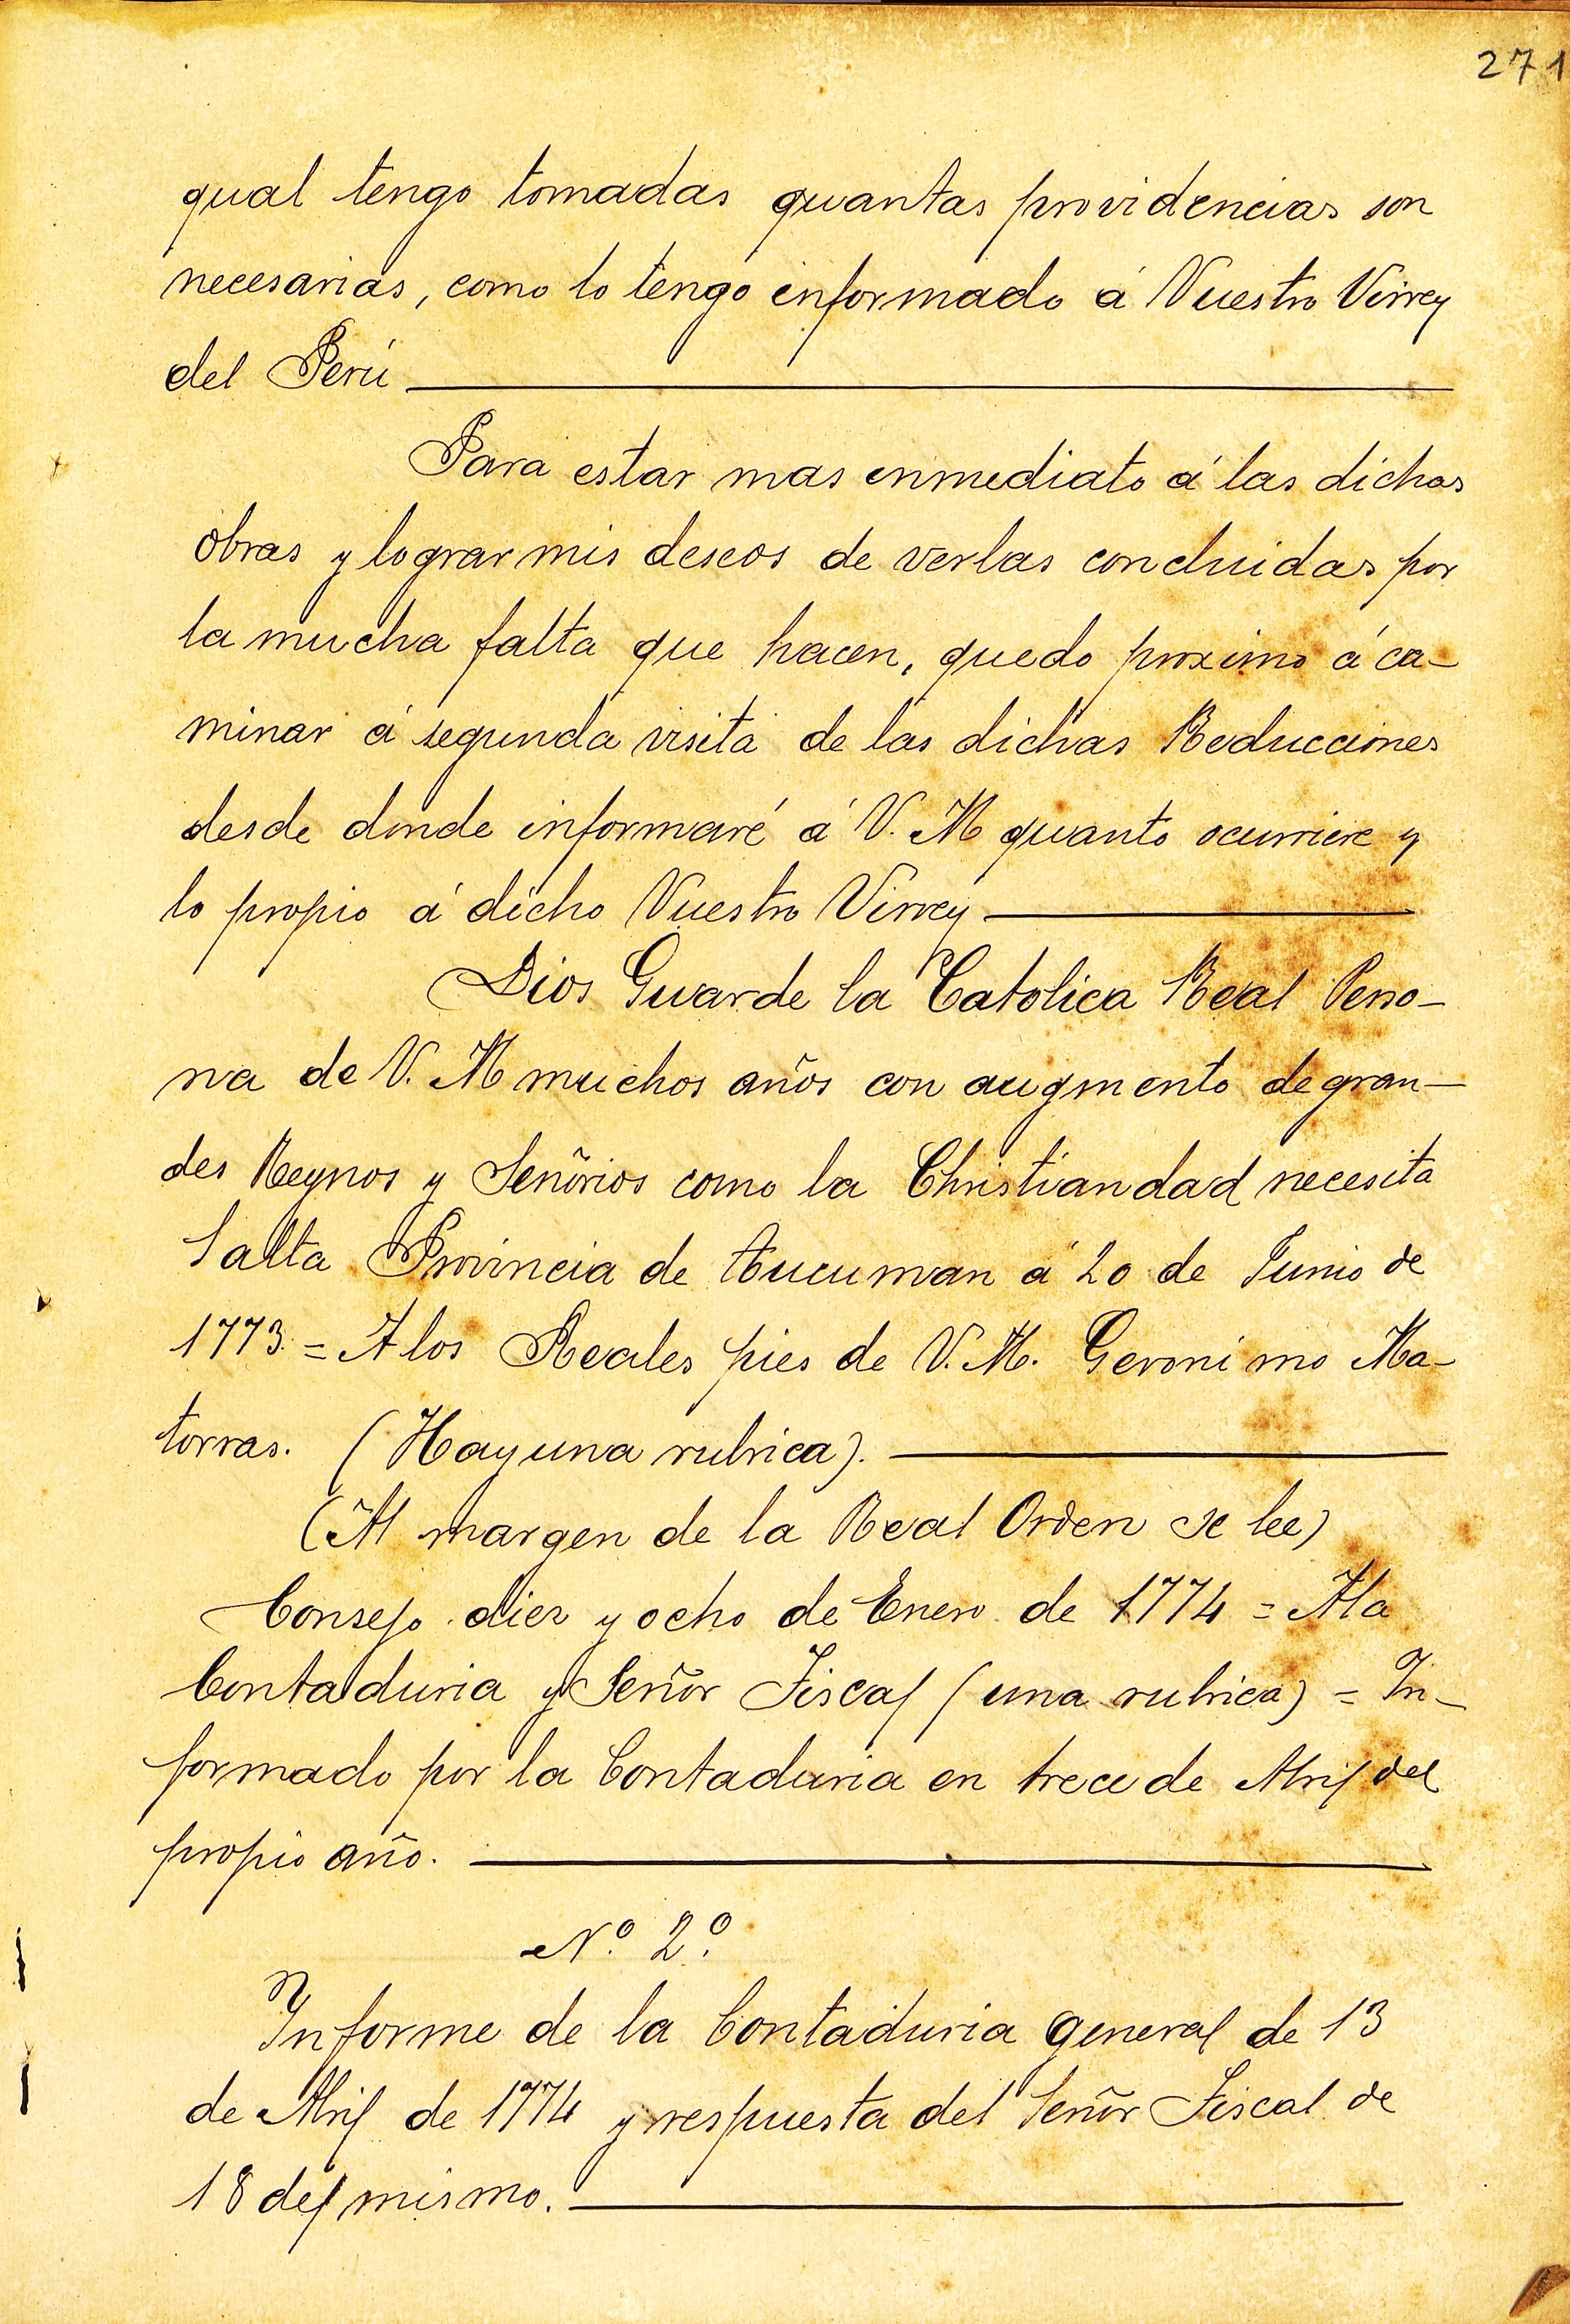 271
qual tengo tomadas quantas providencias son
necesarias, como lo tengo informado á Vuestro Virrey
del Perú
Para estar mas inmediato á las dichas
obras y lograr mis deseos de verlas concluidas por
la mucha falta que hacen, quedo proximo á ca-
minar á segunda visita de las dichas Reducciones
desde donde informaré á V. M quanto ocurriere y
lo propio á dicho Vuestro Virrey
Dios Guarde la Catolica Real Perso-
na de V. M muchos años con augmento de gran-
des Reynos y Señorios como la Christiandad necesita
Salta Provincia de Tucuman á 20 de Junio de
1773. = A los Reales pies de V. M. Geronimo Ma-
torras. (Hay una rubrica).
(Al margen de la Real Orden se lee)
Consejo diez y ocho de Enero de 1774 = A la
Contaduria y Señor Fiscal (una rubrica) = In-
formado por la Contaduria en trece de Abril del
propio año.
Nº. 2º.
Informe de la Contaduria general de 13
de Abril de 1774 y respuesta del Señor Fiscal de
18 del mismo.